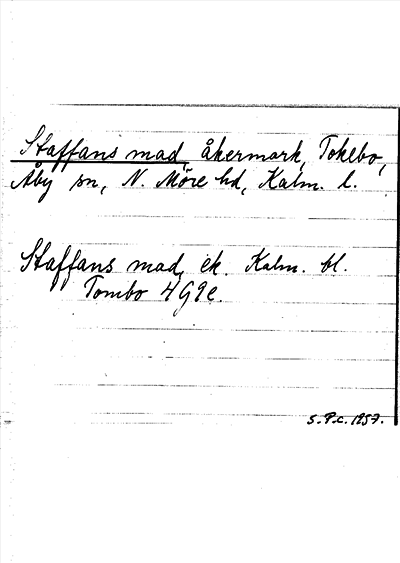 Staffans mad, åkermark, Tokebo,
Åby sn, N. Möre hd, Kalm. l.
Staffans mad, ek. Kalm. bl.
Tombo 4G9e.
S.P.c. 1957.